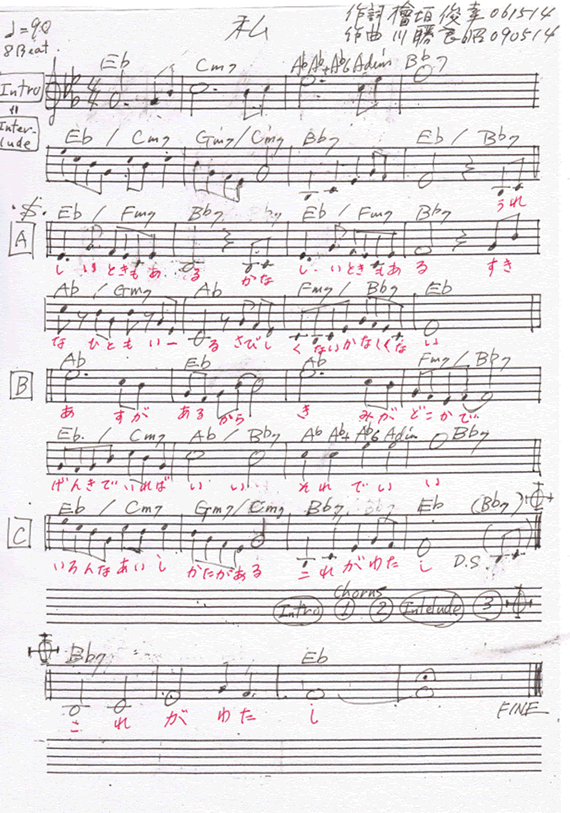 ♩=90
8 Beat.
私
作詞 檜垣 俊幸 061514
作曲 川勝 良昭 090514
Intro
=
Inter-
lude
Eb Cm7 Ab Ab+ Ab6 Adim Bb7
Eb / Cm7 Gm7/Cm7 Bb7 Eb / Bb7
うれ
A
Eb / Fm7 Bb7 Eb / Fm7 Bb7
しいときもある かなしいときもある すき
Ab / Gm7 Ab Fm7 / Bb7 Eb
なひともいーる さびしくないかなしくない
B
Ab Eb Ab Fm7 / Bb7
あすがあるから きみがどこかで
Eb. / Cm7 Ab / Bb7 Ab Ab+ Ab6 Adim Bb7
げんきでいればいい それでいい
C
Eb / Cm7 Gm7/Cm7 Bb7 Eb (Bb7)
いろんなあいしかたがある これがわたし D.S.
Chorus
Intro 1 2 Intelude 3
Bb7 Eb
これがわたし
FINE